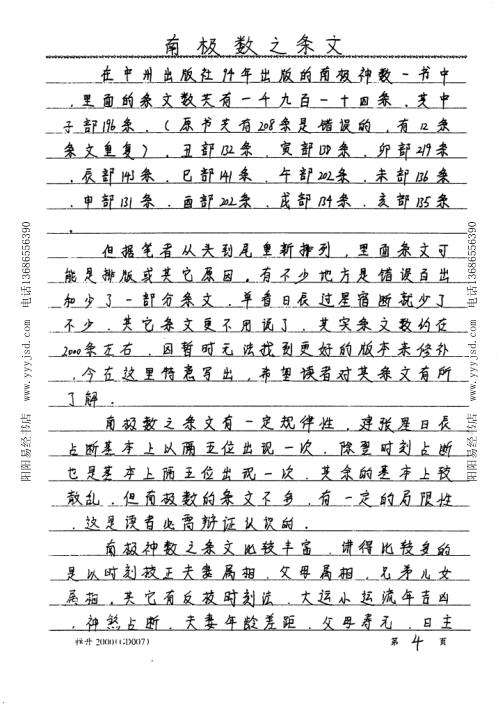 南极数之条文
在中州出版社94年出版的南极神数一书中
，里面的条文数共有一千九百一十四条，其中
子部196条，（原书共有208条是错误的，有12条
条文重复），丑部132条，寅部138条，卯部219条
，辰部143条，巳部141条，午部202条，未部136条
，申部131条，酉部202条，戌部134条，亥部135条
。
但据笔者从头到尾重新排列，里面条文可
能是排版或其它原因。有不少地方是错误百出
和少了一部分条文，单看日辰过星宿断就少了
不少，其它条文更不用说了，其实条文数约在
2000条左右，因暂时无法找到更好的版本来修补
，今在这里特意写出，希望读者对其条文有所
了解。
南极数之条文有一定规律性，建张星日辰
占断基本上以隔五位出现一次，除翌时刻占断
也是基本上隔五位出现一次，其余的基本上较
散乱，但南极数的条文不多，有一定的局限性
，这是读者必需辩证认识的。
南极神数之条文比较丰富，讲得比较多的
是以时刻校正夫妻属相，父母属相，兄弟儿女
属相。其它有反校时刻法，大运小运流年吉凶
，神煞占断，夫妻年龄差距，父母寿元，日主
稿升2000(GD007)
第 4 页
阳阳易经书店 www.yyyjsd.com 电话13686556390
阳阳易经书店 www.yyyjsd.com 电话13686556390